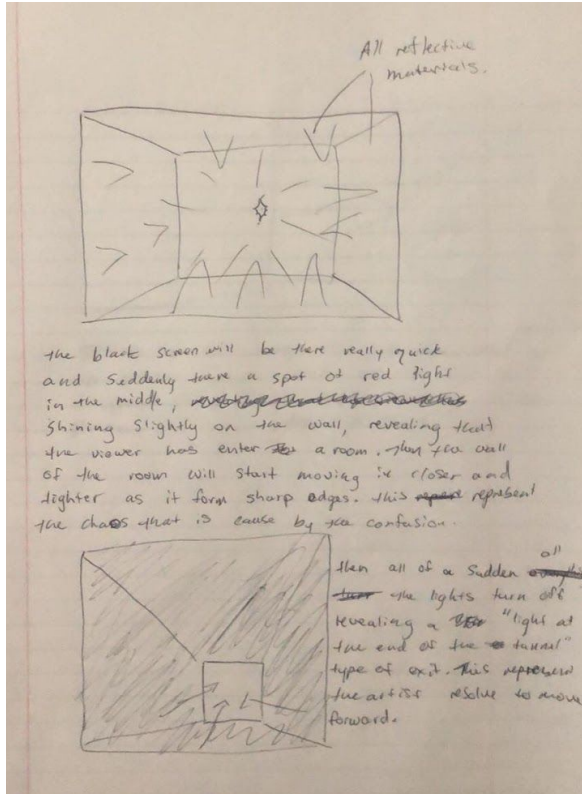 All reflective
materials.
the black screen will be there really quick
and Suddenly there a spot of red light
in the middle,
shining slightly on the wall, revealing that
the viewer has enter a room. then the wall
of the room will start moving in closer and
tighter as it form sharp edges. this represent
the chaos that is cause by the confusion.
then all of a sudden all
the lights turn off
revealing a "light at
the end of the tunnel"
type of exit. This represent
the artist resolve to move
forward.